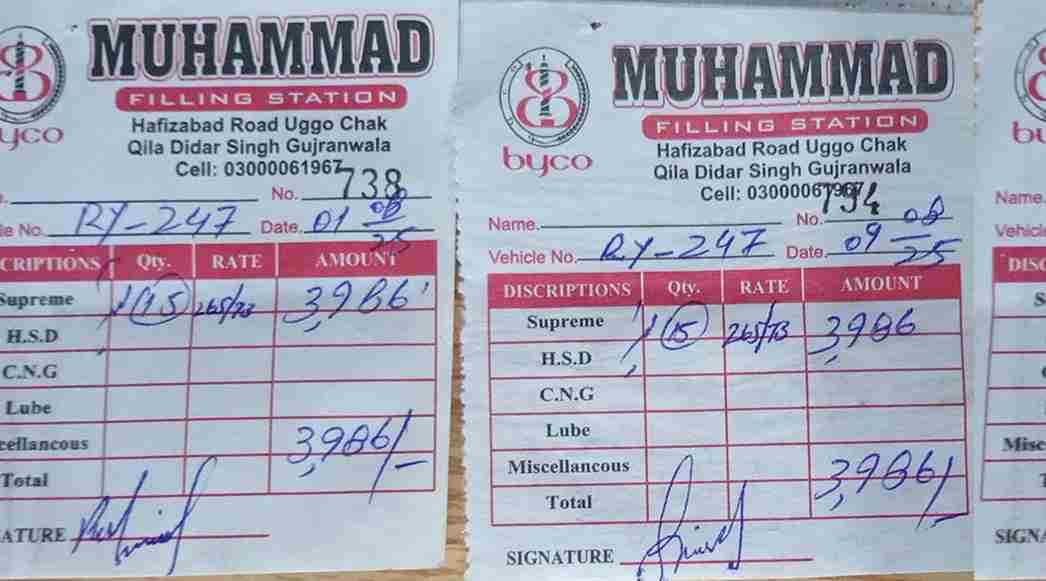 MUHAMMAD
FILLING STATION
byco
Hafizabad Road Uggo Chak
Qila Didar Singh Gujranwala
Cell: 03000061967
No. 738
le No. RY-247 Date. 01 08/25
CRIPTIONS Qty. RATE AMOUNT
Supreme 15 265/73 3,986
H.S.D
C.N.G
Lube
cellancous
Total 3,986/-
ATURE
MUHAMMAD
FILLING STATION
byco
Hafizabad Road Uggo Chak
Qila Didar Singh Gujranwala
Cell: 03000061967
Name. No. 794
Vehicle No. RY-247 Date. 09 08/25
DISCRIPTIONS Qty. RATE AMOUNT
Supreme 15 265/73 3,986
H.S.D
C.N.G
Lube
Miscellancous
Total 3,986/-
SIGNATURE
by
Name.
Vehicle
DISC
S
Misc
T
SIGNA